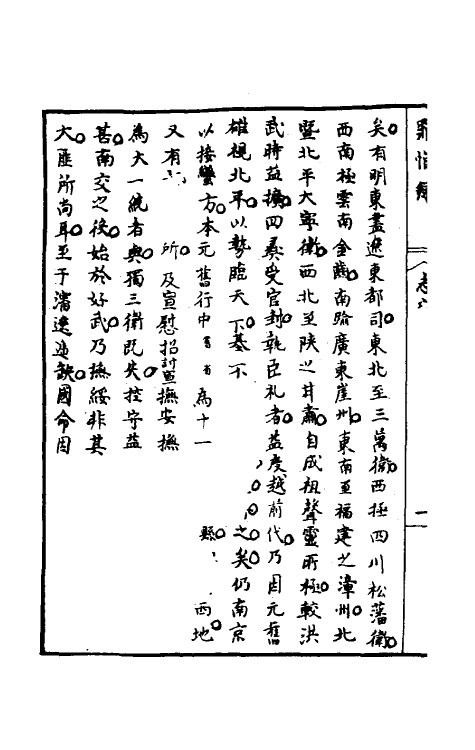 罪惟錄
卷六
一
矣有明東盡遼東都司東北至三萬衛西極四川松藩衛
西南極雲南金齒南踰廣東崖州東南至福建之漳州北
暨北平大寧衛西北至陝之甘肅自成祖聲靈所極較洪
武時益擴四彞受官封執臣礼者益度越前代乃因元舊
雄視北平以勢臨天下甚不 之矣仍南京
以接蠻方本元舊行中 省為十一 縣 西地
又有 所及宣慰招討宣撫安撫
為大一統者與獨三衛既失控守益
甚南交之後始於好武乃撫綏非其
大匪所尚耳至于瀋遼迯缺國命因